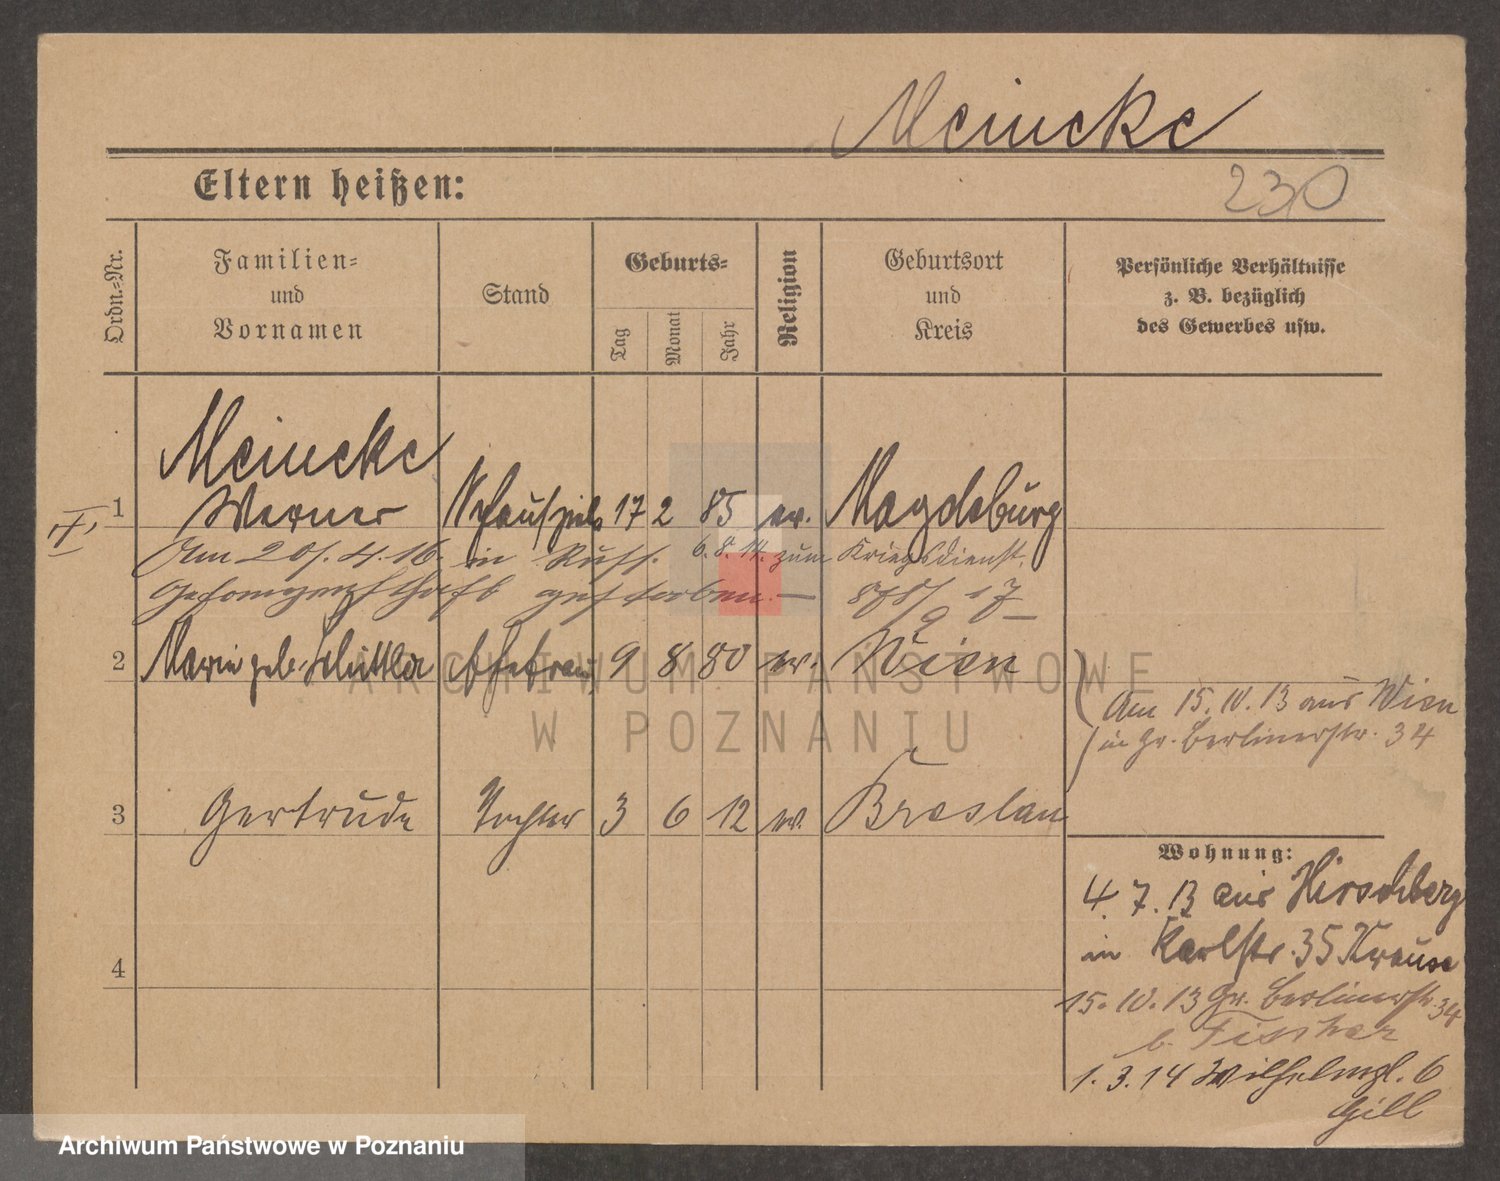 Meinecke
Eltern heißen:
230
Ordn.-Nr.
Familien-
und
Vornamen
Stand
Geburts-
Tag
Monat
Jahr
Religion
Geburtsort
und
Kreis
Persönliche Verhältnisse
z. B. bezüglich
des Gewerbes usw.
Meinecke
1 Werner Schauspiels 17 2 85 ev. Magdeburg
Am 20. 4. 16. in Russ. 6. 8. 14. zum Kriegsdienst.
gestorben. — 17
2 Marie geb. Ehefrau 9 8 80 ev. Wien
Am 15. IV. 13 aus Wien
in Gr. Berlinerstr. 34
3 Gertrude Tochter 3 6 12 ev. Breslau
Wohnung:
4. 7. 13 aus Hirschberg
in Karlstr. 35 Krause
15. IV. 13 Gr. Berlinerstr. 34
b. Fischer
1. 3. 14 Wilhelmpl. 6
Gill
4
ARCHIWUM PAŃSTWOWE
W POZNANIU
Archiwum Państwowe w Poznaniu